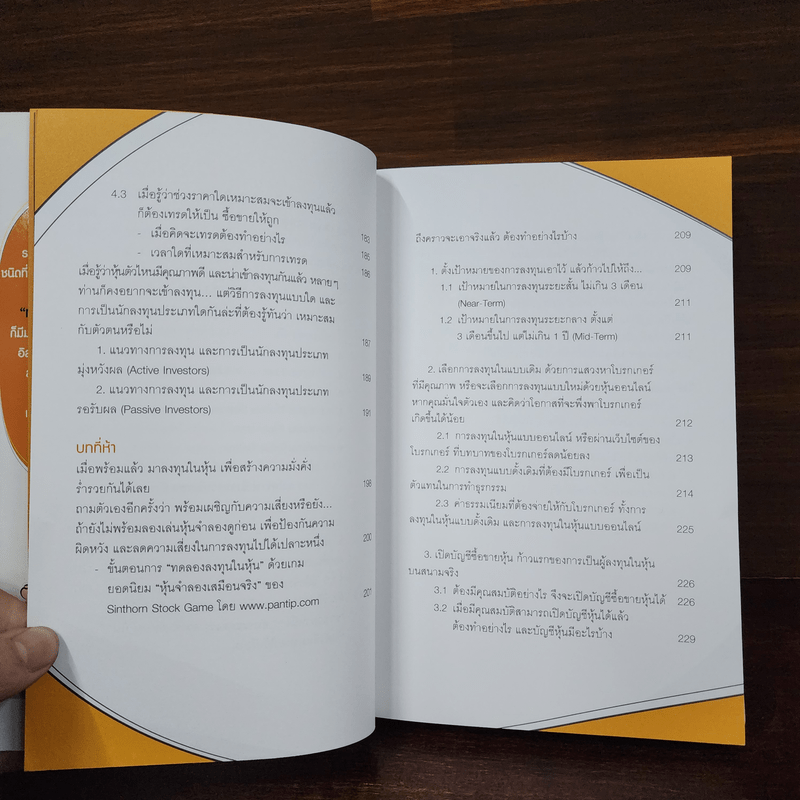 4.3 เมื่อรู้ว่าช่วงราคาใดเหมาะสมจะเข้าลงทุนแล้ว
ก็ต้องเทรดให้เป็น ซื้อขายให้ถูก
- เมื่อคิดจะเทรดต้องทำอย่างไร 183
- เวลาใดที่เหมาะสมสำหรับการเทรด 185
เมื่อรู้ว่าหุ้นตัวไหนมีคุณภาพดี และน่าเข้าลงทุนกันแล้ว หลายๆ 186
ท่านก็คงอยากจะเข้าลงทุน... แต่วิธีการลงทุนแบบใด และ
การเป็นนักลงทุนประเภทใดกันล่ะที่ต้องรู้ทันว่า เหมาะสม
กับตัวตนหรือไม่ 187
1. แนวทางการลงทุน และการเป็นนักลงทุนประเภท
มุ่งหวังผล (Active Investors) 189
2. แนวทางการลงทุน และการเป็นนักลงทุนประเภท
รอรับผล (Passive Investors) 191
บทที่ห้า
เมื่อพร้อมแล้ว มาลงทุนในหุ้น เพื่อสร้างความมั่งคั่ง
ร่ำรวยกันได้เลย 198
ถามตัวเองอีกครั้งว่า พร้อมเผชิญกับความเสี่ยงหรือยัง...
ถ้ายังไม่พร้อมลองเล่นหุ้นจำลองดูก่อน เพื่อป้องกันความ
ผิดหวัง และลดความเสี่ยงในการลงทุนไปได้เปลาะหนึ่ง 200
- ขั้นตอนการ "ทดลองลงทุนในหุ้น" ด้วยเกม
ยอดนิยม "หุ้นจำลองเสมือนจริง" ของ
Sinthorn Stock Game โดย www.pantip.com 201
ถึงคราวจะเอาจริงแล้ว ต้องทำอย่างไรบ้าง 209
1. ตั้งเป้าหมายของการลงทุนเอาไว้ แล้วก้าวไปให้ถึง... 209
1.1 เป้าหมายในการลงทุนระยะสั้น ไม่เกิน 3 เดือน
(Near-Term) 211
1.2 เป้าหมายในการลงทุนระยะกลาง ตั้งแต่
3 เดือนขึ้นไป แต่ไม่เกิน 1 ปี (Mid-Term) 211
2. เลือกการลงทุนในแบบเดิม ด้วยการแสวงหาโบรกเกอร์
ที่มีคุณภาพ หรือจะเลือกการลงทุนแบบใหม่ด้วยหุ้นออนไลน์
หากคุณมั่นใจตัวเอง และคิดว่าโอกาสที่จะพึ่งพาโบรกเกอร์
เกิดขึ้นได้น้อย 212
2.1 การลงทุนในหุ้นแบบออนไลน์ หรือผ่านเว็บไซต์ของ
โบรกเกอร์ ที่บทบาทของโบรกเกอร์ลดน้อยลง 213
2.2 การลงทุนแบบดั้งเดิมที่ต้องมีโบรกเกอร์ เพื่อเป็น
ตัวแทนในการทำธุรกรรม 214
2.3 ค่าธรรมเนียมที่ต้องจ่ายให้กับโบรกเกอร์ ทั้งการ
ลงทุนในหุ้นแบบดั้งเดิม และการลงทุนในหุ้นแบบออนไลน์ 225
3. เปิดบัญชีซื้อขายหุ้น ก้าวแรกของการเป็นผู้ลงทุนในหุ้น
บนสนามจริง 226
3.1 ต้องมีคุณสมบัติอย่างไร จึงจะเปิดบัญชีซื้อขายหุ้นได้ 226
3.2 เมื่อมีคุณสมบัติสามารถเปิดบัญชีหุ้นได้แล้ว
ต้องทำอย่างไร และบัญชีหุ้นมีอะไรบ้าง 229